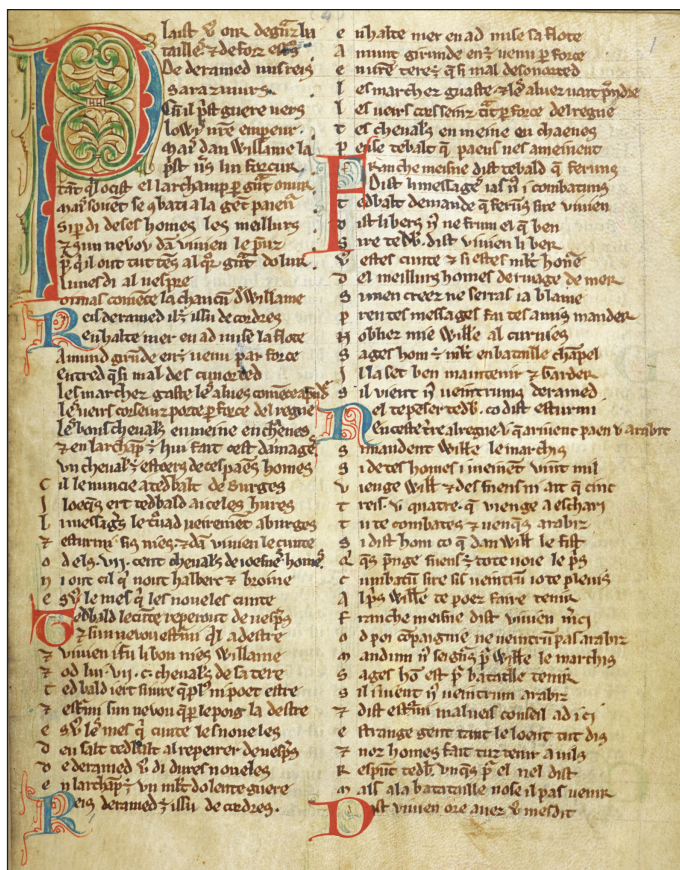 Plaist v oir de gnz bataill
taille⁊ & de forz esturs
De deramed uns reis
sarazinurs.
Cũ il p̃st guere uers
lowis nr̃e empeur.
Mais dan Willame la
p̃st ũs lui forcur
tãt q̃l ocist el larchamp p gñt onur
mais souẽt se cũbati a la gẽt paienʼ
si pdi de ses homes les meillurs
⁊ sun nevou dã vivien le pruz
p̃ q̃ il out tut tẽs al q̃r gñt dolur.
Lunesdi al vespre
oimas comẽce la chanc̃ũ d Willame
Reis deramed il ⁊ issu de cordres
En halte mer en ad mise la flote
Amund girũde en ⁊ venu par force
Les marchez guaste les alues comẽce a p̃nd̃
Les veirs cors seinz porte p force del regne
les bons chevals en meine en cheines
⁊ en larchãp ⁊ hui fait cest damage
un cheval⁊ estoers de ces paẽs homes
cil le nuncie a tedbalt de burges
I loeq̃s ert tedbald a iceles hures
li messag̃s le t̃ud veirement a burges
⁊ esturmi sis niés. ⁊ dã vivien le cunte
od els .vii. cent chevals de ioefnes homes
n i out cil q̃ nout halberc ⁊ broine
es v le mes q̃ les noueles cunte
Tedbald le cũte reperout de vesp̃s
⁊ sun nevou esturmi q̃l adestre
⁊ vivien i fu li bon nies Willame
⁊ od lui .vii. c. chevals de sa tere
tedbald iert si ivre q̃ pl⁹ ni poet estre
⁊ esturmi sun nevou q̃ p le poig la destre
es v le mes q̃ cunte les noueles
deu salt tedbalt al repeirer de vesp̃s
de deramed v di dures noueles
en larchãp ⁊ un mlt dolente guere
Reis deramed ⁊ issu de cordres.
en halte mer en ad mise sa flote
Amunt girunde en ⁊ venu p force
en nr̃e tere ⁊ q̃ si mal desonorted
les marchez guaste ⁊ les aluez vait p̃ndre
les veirs cors seinz tr̃it p force del regne
tes chevals en meine en chaenes
peise tebalt q̃ paens nes ameinent
Franche meisne dist tebald q̃ ferums
Dist li messages ias ñ i combatuns
tedbalt demande q̃ ferũs sire vivien
dist li bers ñ ne frum el q̃ ben
Sire tedb̃. dist vivien li ber
v estes cunte ⁊ si estes mlt honẽ
del meillurs homes de rivage de mer
Si men creez ne serras ia blame
pren tes messages fai tes amis mander
Nobliez mie Wille al curnies
Sages hom ⁊ mlt en bataille chapel
Il la set ben maintenir ⁊ garder
Sil vient ñ veintrums deramed
Nel te penser tedb̃. co dist esturmi
En ceste tr̃re al regne v q̃ arivent paen v arabit
Si mandent Wille le marchis
Si de tes homes i meinet vint mil
vienge Will ⁊ des suens ni ait q̃ cinc
treis. v quatre. q̃ vienge a eschari
tu te combates ⁊ venq̃s arabiz
Si dist hom co q̃ dan Will le fist
Qi q̃s p̃nge suens ⁊ tote voie le p̃s
cumbatũ sire si veintrũ io te plevis
Al p̃s Wille te poez faire tenir
Franche meisne dist vivien m̃ci
od poi cõpaignie ne veintrũ pas arabiz
mandum ñ seigñs p̃ Wille le marchis
Sages hõ est p̃ bataille tenir
Sil i vient ñ veintrum arabiz
⁊ dist esturmi malveis conseil ad ici
estrange gent tant le loent tut dis
⁊ noz homes fait tuz tenir a vils
Respũt tedb̃. unq̃s p̃ el nel dist
mais a la bataille nose il pas venir
Dist vivien ore avez v mesdit